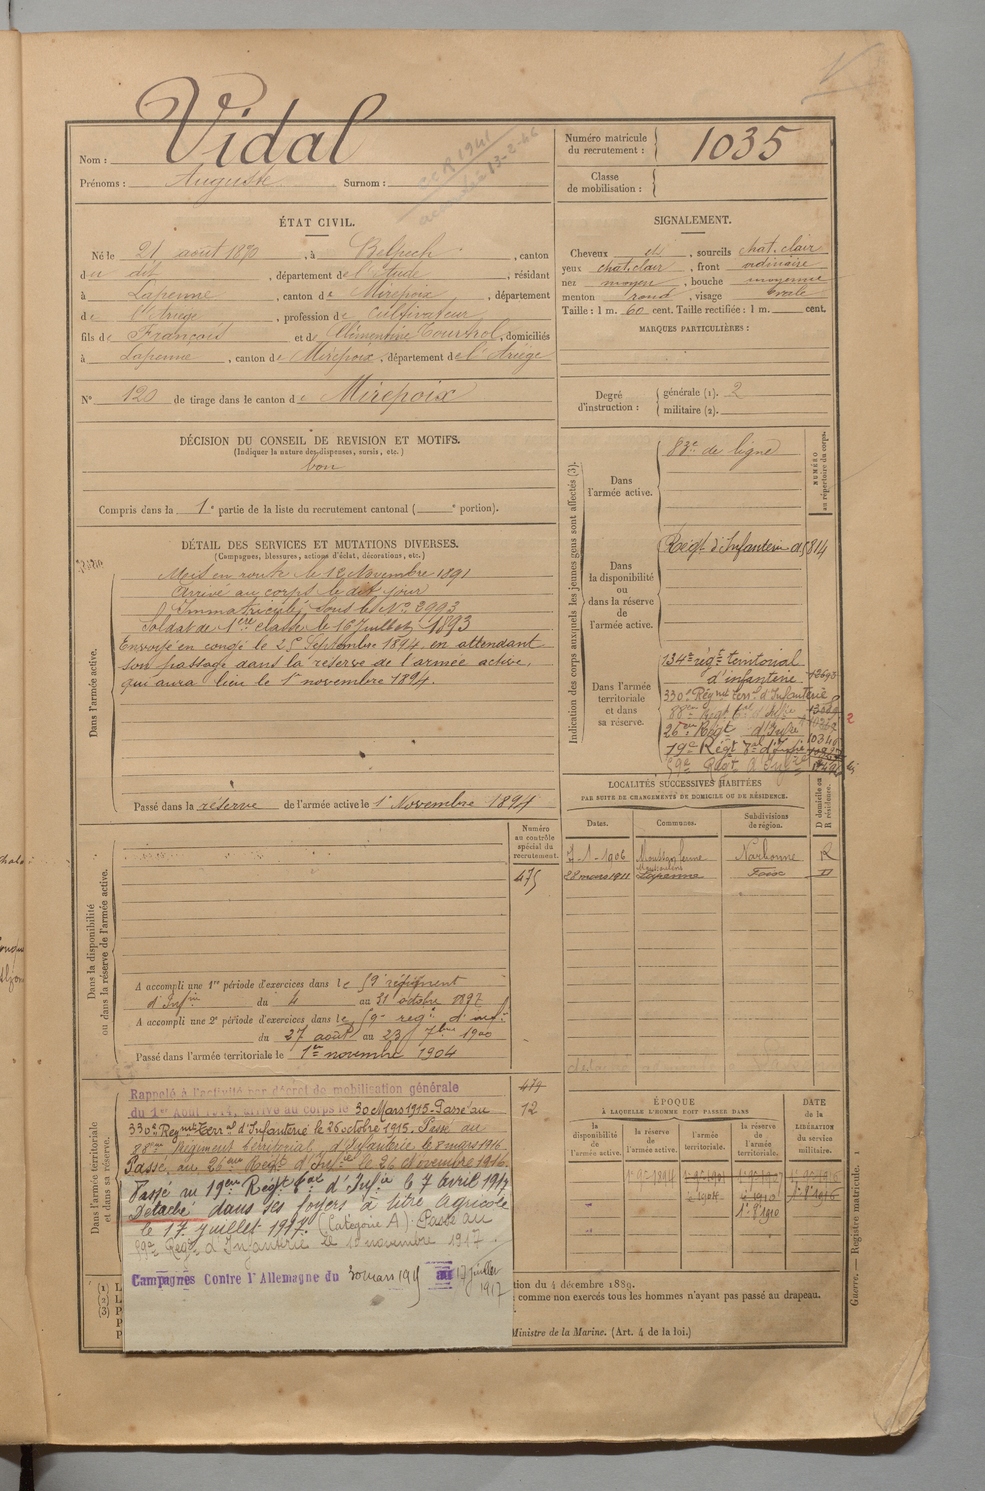 Nom : Vidal
Prénoms : Auguste Surnom :
Numéro matricule du recrutement : 1035
Classe de mobilisation :
ÉTAT CIVIL.
Né le 21 août 1870, à Belpech, canton
du dit, département de l'Aude, résidant
à Lapenne, canton de Mirepoix, département
de l'Ariège, profession de Cultivateur
fils de François et de Clémentine, domiciliés
à Lapenne, canton de Mirepoix, département de l'Ariège
N° 120 de tirage dans le canton de Mirepoix
DÉCISION DU CONSEIL DE REVISION ET MOTIFS.
(Indiquer la nature des dispenses, sursis, etc.)
bon
Compris dans la 1e partie de la liste du recrutement cantonal ( e portion).
SIGNALEMENT.
Cheveux et, sourcils chat. clair
yeux chat. clair, front ordinaire
nez moyen, bouche moyenne
menton rond, visage ovale
Taille : 1 m. 60 cent. Taille rectifiée : 1 m. cent.
MARQUES PARTICULIÈRES :
Degré d'instruction :
générale (1). 2
militaire (2).
DÉTAIL DES SERVICES ET MUTATIONS DIVERSES.
(Campagnes, blessures, actions d'éclat, décorations, etc.)
Dans l'armée active.
Mis en route le 12 Novembre 1891
Arrivé au corps le dit jour
Immatriculé sous le N° 2993
Soldat de 1ère classe le 16 Juillet 1893
Envoyé en congé le 25 Septembre 1894, en attendant
son passage dans la réserve de l'armée active,
qui aura lieu le 1er novembre 1894.
Passé dans la réserve de l'armée active le 1er Novembre 1894
Indication des corps auxquels les jeunes gens sont affectés (3).
NUMÉRO au répertoire du corps.
Dans l'armée active.
83e de ligne
Dans la disponibilité ou dans la réserve de l'armée active.
Régt d'Infanterie
Dans l'armée territoriale et dans sa réserve.
134e régt territorial
d'infanterie
330e Régmt Terral d'Infanterie
88ème Régt
26ème Régt d'Infie
19e Régt Tal d'Infie
LOCALITÉS SUCCESSIVES HABITÉES
PAR SUITE DE CHANGEMENTS DE DOMICILE OU DE RÉSIDENCE.
Dates. Communes. Subdivisions de région. D domicile ou R résidence.
7-1-1906 Narbonne R
28 mars 1911 Lapenne Foix D
Dans la disponibilité ou dans la réserve de l'armée active.
Numéro au contrôle spécial du recrutement.
475
A accompli une 1re période d'exercices dans le 59e régiment
d'Infie du 4 au 31 octobre 1897
A accompli une 2e période d'exercices dans le 59e régt d'inf.
du 27 août au 23 7bre 1900
Passé dans l'armée territoriale le 1er novembre 1904
Dans l'armée territoriale et dans sa réserve.
479
12
Rappelé à l'activité par décret de mobilisation générale
du 1er Août 1914, arrivé au corps le 30 Mars 1915. Passé au
330e Regmt Terral d'Infanterie le 26 octobre 1915. Passé au
88ème Régiment territorial d'Infanterie le 8 mars 1916.
Passé au 26ème Régt d'Infie le 26 Novembre 1916.
Passé au 19ème Régt Tal d'Infie le 7 avril 1917
Détaché dans ses foyers à titre Agricole
le 17 juillet 1917. (Catégorie A). Passé au
59e Régt d'Infanterie le 1er novembre 1917.
Campagnes Contre l'Allemagne du 30 mars 1915 au 17 juillet 1917
ÉPOQUE
À LAQUELLE L'HOMME DOIT PASSER DANS
la disponibilité de l'armée active. la réserve de l'armée active. l'armée territoriale. la réserve de l'armée territoriale.
DATE de la LIBÉRATION du service militaire.
1er 9bre 1894
tion du 4 décembre 1889.
comme non exercés tous les hommes n'ayant pas passé au drapeau.
Ministre de la Marine. (Art. 4 de la loi.)
Guerre. — Registre matricule. 1